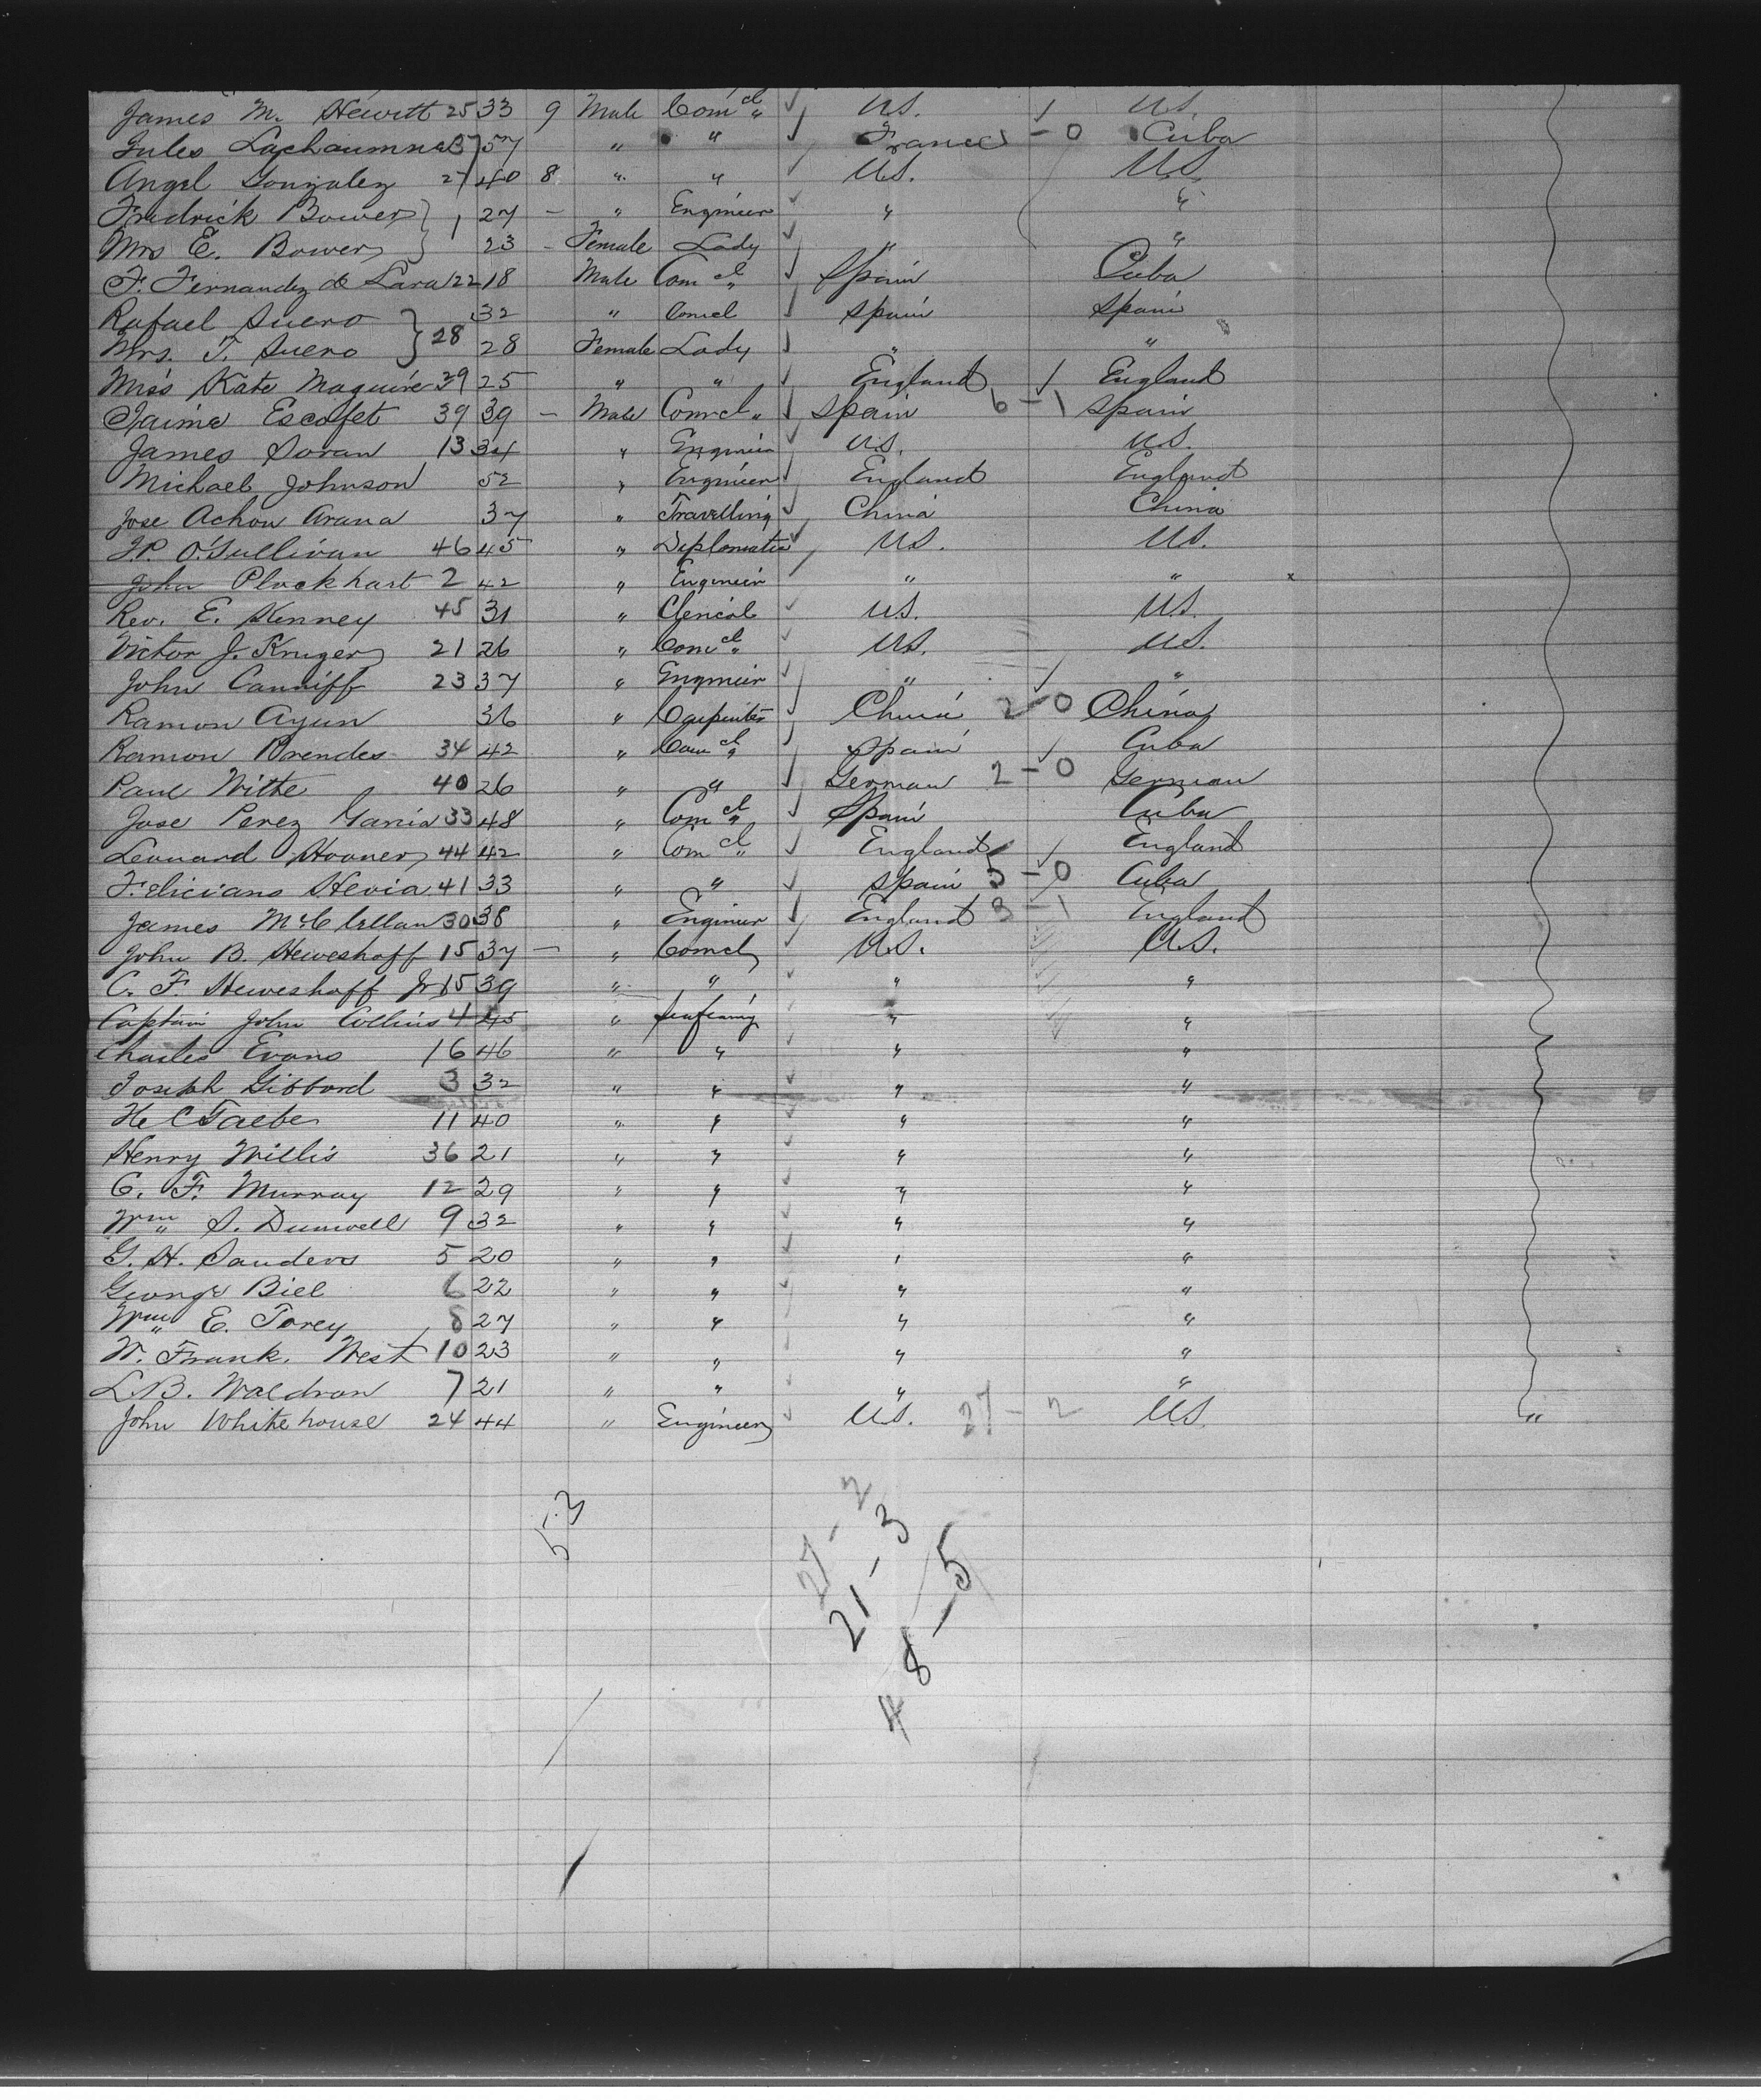 James M. Hewitt 25 33 9 Male Com'cl " ✓ U.S. ✓ U.S.
Jules Lachaumne 37 57 " " ✓ France - 0 Cuba
Angel Gonzalez 27 40 8 " " ✓ U.S. U.S.
Fredrick Bowers } 1 27 - " Engineer ✓ " "
Mrs E. Bowers } 23 - Female Lady ✓ " "
F. Fernandez de Lara 22 18 Male Com cl " ✓ Spain Cuba
Rafael Suero } 28 32 " Comcl ✓ Spain Spain
Mrs. T. Suero } 28 Female Lady ✓ " "
Miss Kate Maguire 29 25 " " ✓ England ✓ England
Jaime Escofet 39 39 - Male Comcl " ✓ Spain 6 - 1 Spain
James Soran 13 34 " Engineer ✓ U.S. U.S.
Michael Johnson 52 " Engineer ✓ England England
Jose Achon Arana 37 " Travelling ✓ China China
J.P. O'Sullivan 46 45 " Diplomatic ✓ U.S. U.S.
John Plockhart 2 42 " Engineer " " x
Rev. E. Kenney 45 31 " Clerical ✓ U.S. U.S.
Victor J. Kruger 21 26 " Com cl " ✓ U.S. U.S.
John Canniff 23 37 " Engineer ✓ " ✓ "
Ramon Ayun 36 " Carpenter ✓ China 2 - 0 China
Ramon Prendes 34 42 " Com cl " ✓ Spain ✓ Cuba
Paul Witte 40 26 " " ✓ German 2 - 0 German
Jose Perez 33 48 " Com cl " ✓ Spain Cuba
Leonard Hooner 44 42 " Com cl " ✓ England ✓ England
Feliciano Hevia 41 33 " " ✓ Spain 5 - 0 Cuba
James McClellan 30 38 " Engineer ✓ England 3 - 1 England
John B. Heweshoff 15 37 - " Comcl ✓ U.S. U.S.
C. F. Heweshoff Jr 15 39 " " ✓ " "
Captain John Collins 4 45 " Seafearing ✓ " "
Charles Evans 16 46 " " ✓ " "
Joseph Gibbord 3 32 " " ✓ " "
11 40 " " ✓ " "
Henry Willis 36 21 " " ✓ " "
C. F. Murray 12 29 " " ✓ " "
Wm " S. Dunwell 9 32 " " ✓ " "
G. H. Sanders 5 20 " " ✓ " "
George Biel 6 22 " " ✓ " "
Wm " E. Torey 8 27 " " ✓ " "
W. Frank. West 10 23 " " ✓ " "
L.B. Waldron 7 21 " " ✓ " "
John Whitehouse 24 44 " Engineer ✓ U.S. 27 - 2 U.S. "
53
27 - 2
21 - 3
48 - 5